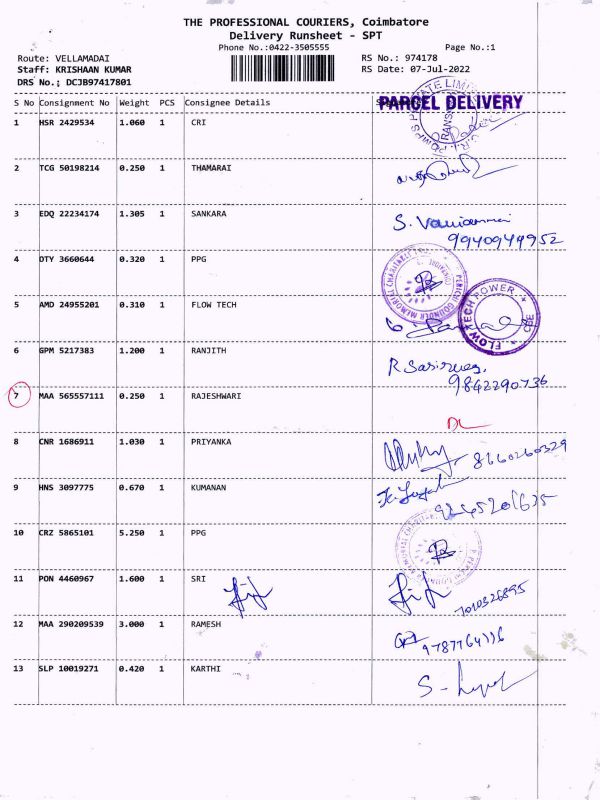 THE PROFESSIONAL COURIERS, Coimbatore
Delivery Runsheet - SPT
Phone No.:0422-3505555 Page No.:1
Route: VELLAMADAI RS No.: 974178
Staff: KRISHAAN KUMAR RS Date: 07-Jul-2022
DRS No.; DCJB97417801
S No Consignment No Weight PCS Consignee Details
PARCEL DELIVERY
1 HSR 2429534 1.060 1 CRI
2 TCG 50198214 0.250 1 THAMARAI
3 EDQ 22234174 1.305 1 SANKARA
9940944952
4 DTY 3660644 0.320 1 PPG
5 AMD 24955201 0.310 1 FLOW TECH
FLOWTECH POWER CBE
6 GPM 5217383 1.200 1 RANJITH
9842290736
7 MAA 565557111 0.250 1 RAJESHWARI
DL
8 CNR 1686911 1.030 1 PRIYANKA
8160260329
9 HNS 3097775 0.670 1 KUMANAN
10 CRZ 5865101 5.250 1 PPG
11 PON 4460967 1.600 1 SRI
7010326895
12 MAA 290209539 3.000 1 RAMESH
13 SLP 10019271 0.420 1 KARTHI